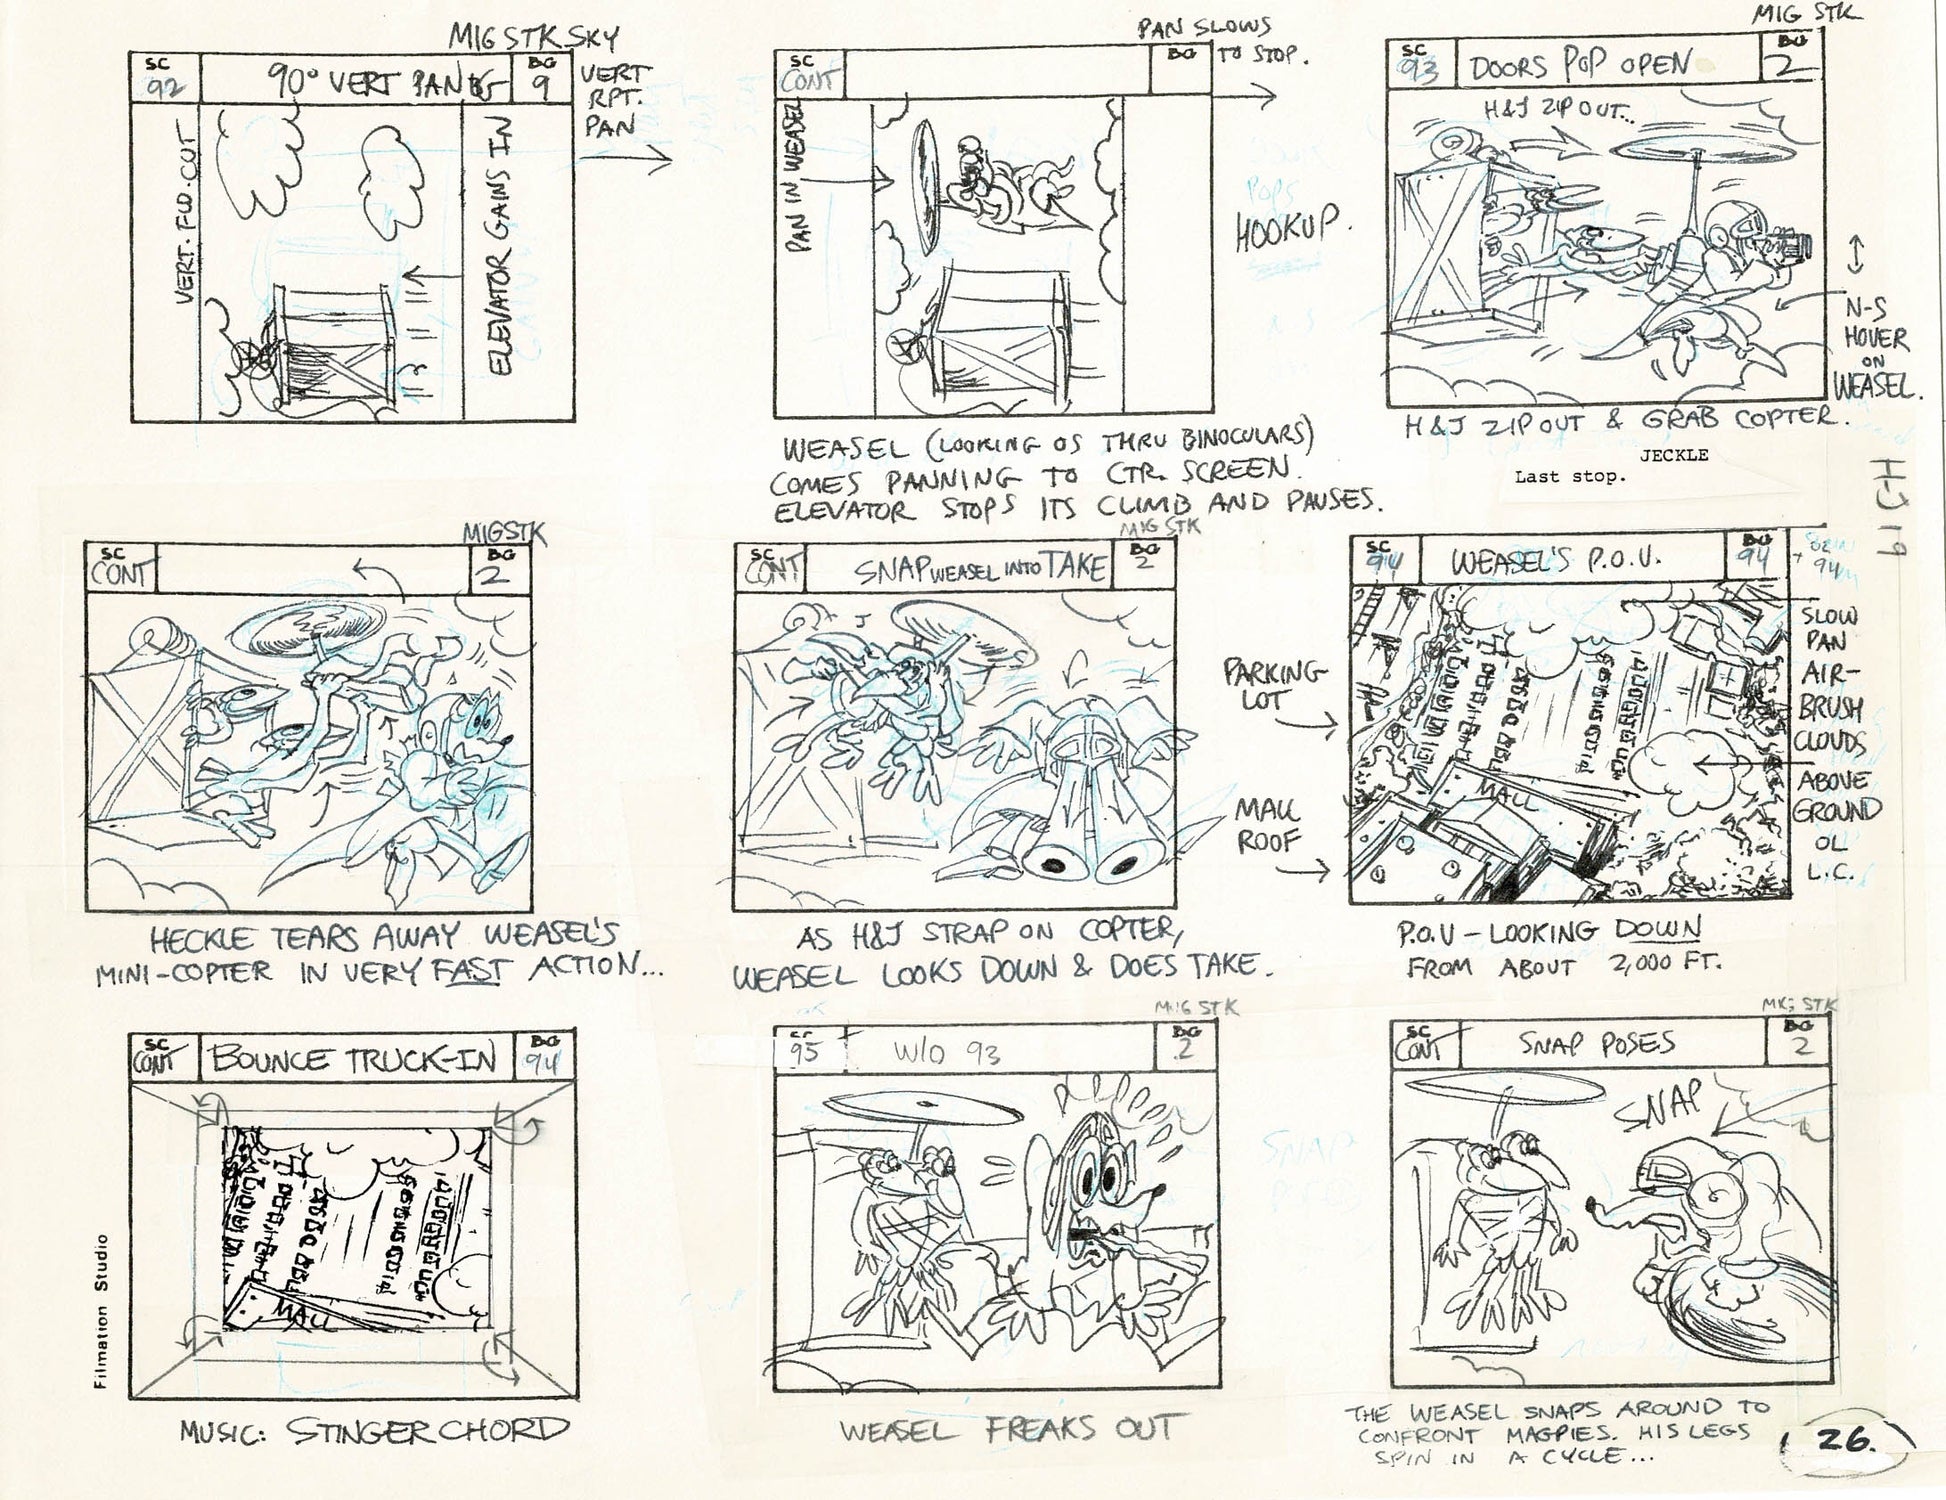 MIG STK SKY
SC
92
90° VERT PAN BG
BG
9
VERT
RPT.
PAN
VERT. FLD. CUT
ELEVATOR GAINS IN
SC
CONT
BG
PAN SLOWS
TO STOP.
PAN IN WEASEL
HOOKUP.
WEASEL (LOOKING OS THRU BINOCULARS)
COMES PANNING TO CTR. SCREEN.
ELEVATOR STOPS ITS CLIMB AND PAUSES.
MIG STK
SC
93
DOORS POP OPEN
BG
2
H&J ZIP OUT...
N-S
HOVER
ON
WEASEL.
H&J ZIP OUT & GRAB COPTER.
JECKLE
Last stop.
H-J 19
MIG STK
SC
CONT
BG
2
HECKLE TEARS AWAY WEASEL'S
MINI-COPTER IN VERY FAST ACTION...
MIG STK
SC
CONT
SNAP WEASEL INTO TAKE
BG
2
J
AS H&J STRAP ON COPTER,
WEASEL LOOKS DOWN & DOES TAKE.
SC
94
WEASEL'S P.O.V.
BG
94
PARKING
LOT
MALL
ROOF
MALL
SLOW
PAN
AIR-
BRUSH
CLOUDS
ABOVE
GROUND
OL
L.C.
P.O.V - LOOKING DOWN
FROM ABOUT 2,000 FT.
SC
CONT
BOUNCE TRUCK-IN
BG
94
MALL
MUSIC: STINGER CHORD
Filmation Studio
MIG STK
SC
95
W/O 93
BG
2
WEASEL FREAKS OUT
MIG STK
SC
CONT
SNAP POSES
BG
2
SNAP
THE WEASEL SNAPS AROUND TO
CONFRONT MAGPIES. HIS LEGS
SPIN IN A CYCLE...
26.